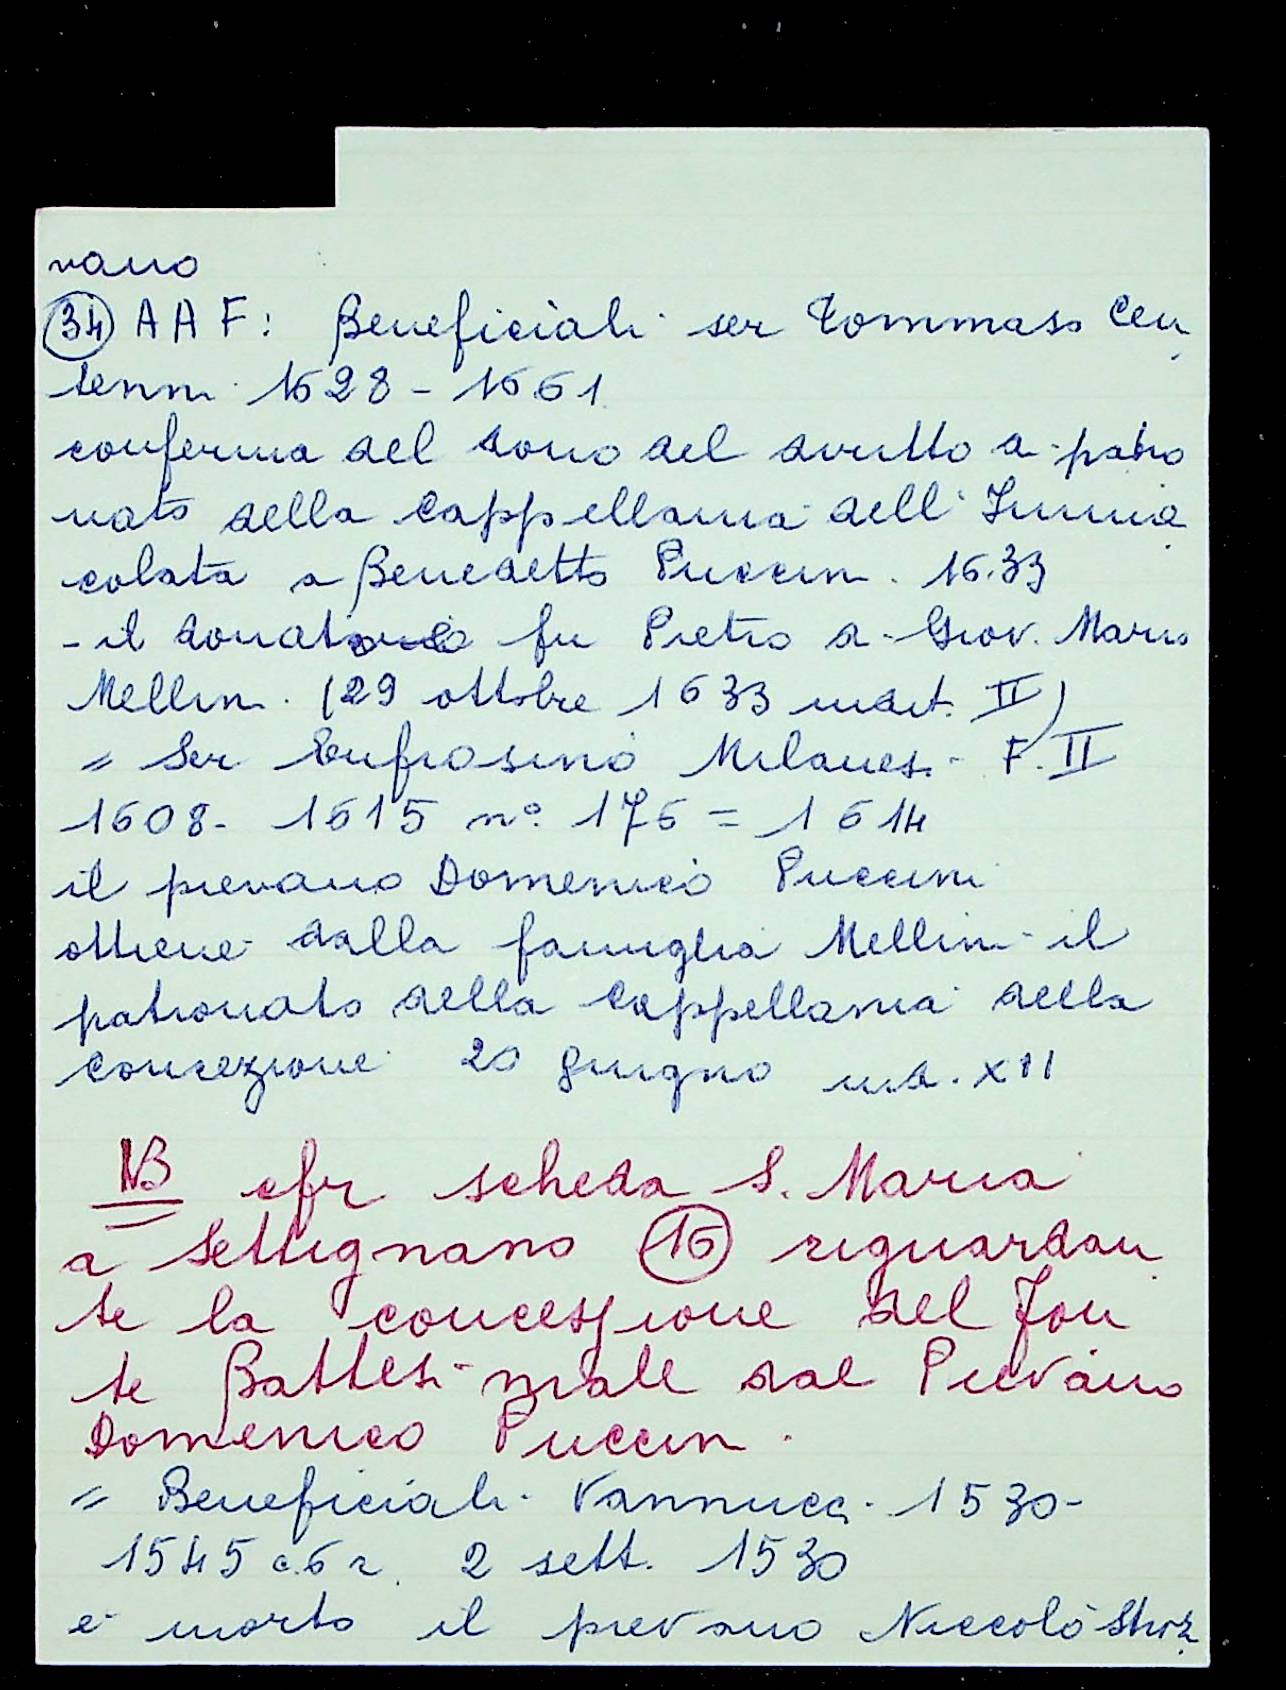 vano
(34) A A F: Beneficiali ser Tommaso Cen
tenni 1628 - 1661
conferma del dono del diritto di patro
nato della Cappellania dell'Imma
colata a Benedetto Puccini. 1633
- il donatore fu Pietro di Giov. Maria
Mellini. (29 ottobre 1633 indict. II)
= Ser Eufrosino Milanesi - F. II
1608 - 1615 n° 176 = 1614
il pievano Domenico Puccini
ottiene dalla famiglia Mellini il
patronato della Cappellania della
Concezione 20 giugno ind. XII
NB cfr scheda S. Maria
a Settignano (16) riguardan
te la concessione del Fon
te Battesi-male dal Pievano
Domenico Puccini.
= Beneficiali Vannucci 1530-
1545 c. 6 r. 2 sett. 1530
è morto il pievano Niccolò Stroz